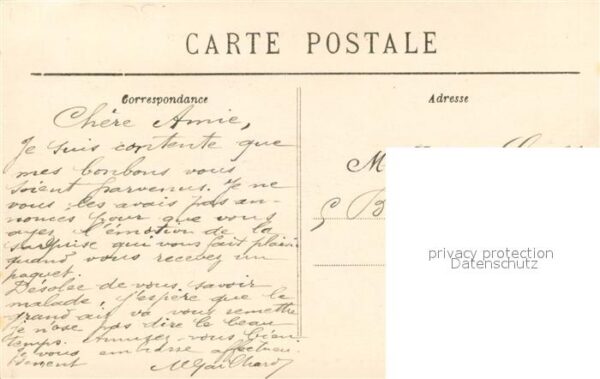 CARTE POSTALE
Correspondance
Adresse
Chère Amie,
Je suis contente que
mes bonbons vous
soient parvenus. Je ne
vous les avais pas an-
noncés pour que vous
ayez l'émotion de la
surprise qui vous fait plaisir
quand vous recevez un
paquet.
Désolée de vous savoir
malade, j'espère que le
grand air va vous remettre
je n'ose pas dire le beau
temps. Amusez-vous bien
Je vous embrasse affectueu-
sement
M Gailhard
M
5 B
privacy protection
Datenschutz